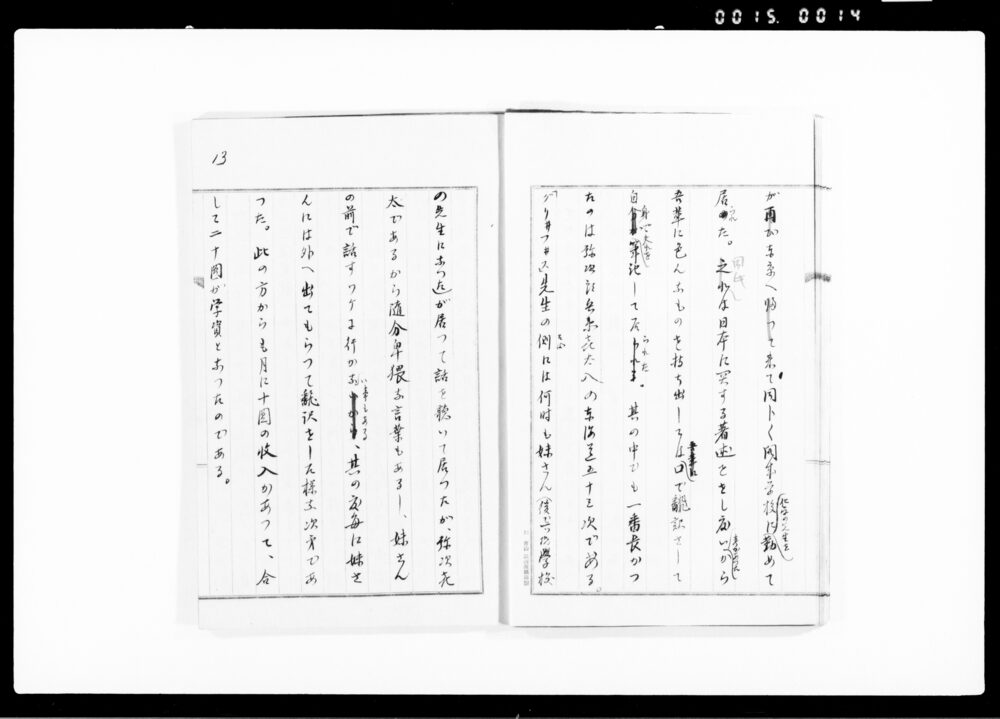 0015. 0014
が再び東京へ帰つて来て同じく開成学校に化学の先生を勤めて
居られた。之れは日本に関する著述をし度いから
吾輩に色んなものを持ち出しては口で翻訳さして
自身で筆記して居られた。其の中でも一番長かつ
たのは弥次郎兵衛喜多八の東海道五十三次である。
グリフィス先生の側には何時も妹さん(後女学校
13
の先生になつた)が居つて話を聴いて居つたが、弥次喜
太であるから随分卑猥な言葉もあるし、妹さん
の前で話すワケに行かない事もある、其の度毎に妹さ
んには外へ出てもらつて翻訳をした様な次第であ
つた。此の方からも月に十圓の收入があつて、合
して二十圓が学資となつたのである。